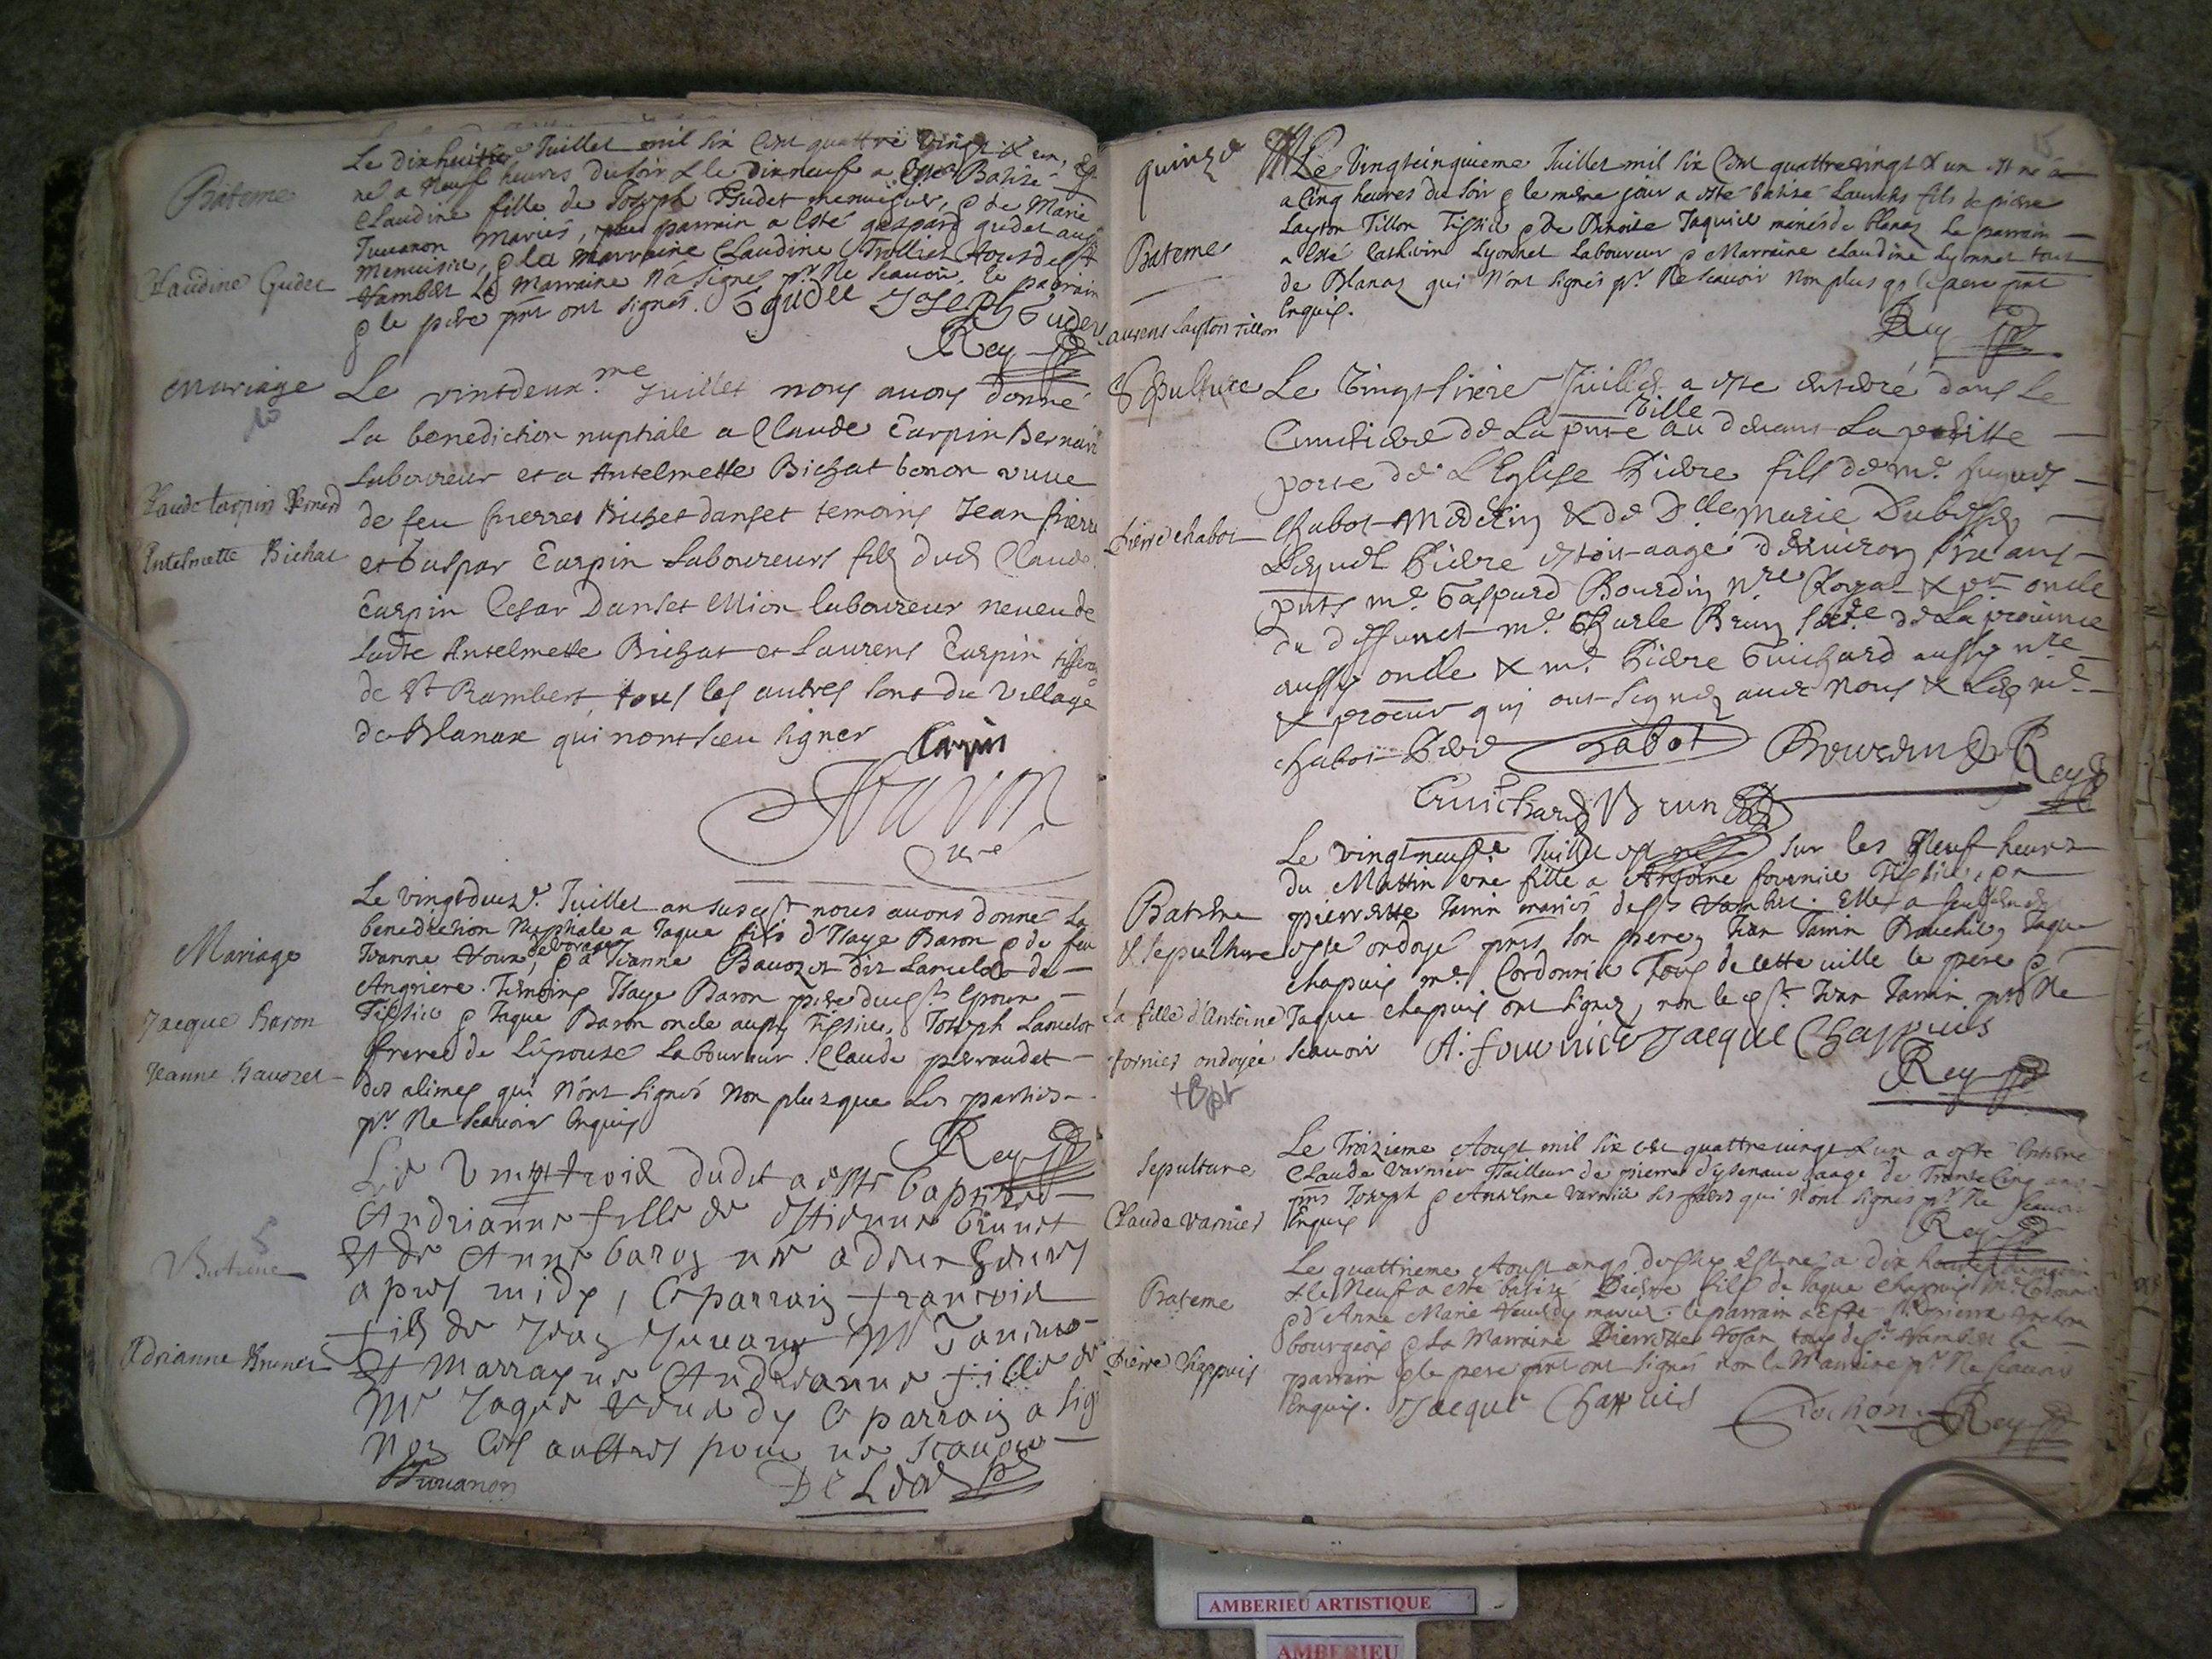 Bateme
Claudine Gudet
Le dixhuitie Juillet mil six Cent quattre vingt & un, est
né a Neuf heures du soir & le dixneuf a esté Batisé
Claudine fille de Joseph Gudet menuisier, & de Marie
Juuanon mariés, parrain a esté gaspard gudet aussi
menuisier, & la marraine Claudine Trolliet tous de st
Rambert La Marraine N'a signé pr. Ne scauoir, le parrain
& le pere pnt ont signés. G gudet Joseph Gudet
Rey
Mariage
Claude Carpin Bernard
Antelmette Bichat
Le vintdeux.me Juillet nous auons donné
la benediction nuptiale a Claude Carpin Bernard
laboureur et a Antelmette Bichat bonon vuue
de feu pierres Bichet danset temoins Jean pierre
et Gaspar Carpin laboureurs fils dud Claude
Carpin Cesar Danset Mion laboureur neueu de
ladte Antelmette Bichat et Laurens Carpin tisserand
de St Rambert, tous les autres sont du village
de Blanax qui nont sceu signer Carpin
Mariage
Jacque Baron
Jeanne Bauozet
Le vingtdeux.e Juillet an susd nous auons donné La
benediction Nuptiale a Jaque fils d'Isaye Baron & de feu
Jeanne Roux, & a Jeanne Bauozet dit Lancelot de
Angriere. Temoins Isaye Baron pere dud Epoux
Tissier & Jaque Baron oncle aussy Tissier, & Joseph Lancelot
frere de L'epouse Laboureur Claude peraudet
des alimes qui N'ont signés Non plus que Les parties
pr. Ne scauoir Enquis
Rey
Bateme
Adrianne Brunet
Le vingttrois dudit a esté baptisée
Andrianne fille de Estienne brunet
Et de Anne baron née a deux heures
apres midy, le parrain francois
fils de Jean Juuanon Mr Tanneur
Et marrayne Andreanne fille de
Mr Jaque le parrain a sig
Non les auttres pour ne scauoir
Juuanon
De Lear
quinze
15
Bateme
Laurens Layton Tillon
Le Vingtcinquieme Juillet mil six Cent quattrevingt & un est né a
a Cinq heures du soir & le meme jour a esté batisé Laurens fils de pierre
Layton Tillon Tissier & de Benoite Jaquier mariés de blanaz Le parrain
a esté Cathérin Lyonnet Laboureur & Marraine Claudine Lyonnet tous
de Blanaz qui N'ont signés pr. Ne scauoir Non plus q le pere pnt
Enquis.
Rey
Sepulture
Pierre Chabot
Le Vingtsixie Juillet a este enterré dans Le
Cimetiere de La pnte ville au deuant La petitte
porte de L'Eglise Pierre fils de me. hugues
Chabot Medecin & de Dlle Marie Dubessey
Lequel Pierre estoit aagé denuiron six ans
pnts me. Gaspard Bourdin nre Royal & oncle
du deffunct me. Charle Brun de La prouince
aussy oncle & me. Pierre Guichard aussy nre
& procur qui ont signez auec Nous & Led me.
Chabot Pere Chabot Bourdin Rey
Guichard Brun
Batéme
& sepulture
La fille d'Antoine
fornier ondoyée
+ Bpt
Le vingtneufe. Juillet est née sur les Neuf heures
du Mattin une fille a Antoine fournier Tissier, &
pierrette Janin mariés de st Rambert. Elle a seulement
esté ondoyé pnts son pere, Jean Janin Boucher, Jaque
chapuis me. Cordonnier Tous de cette ville le pere &
Jaque chapuis ont signez, non le Jean Janin pr Ne
scauoir A. fournier Jacque Chappuis
Rey
Sepulture
Claude Varnier
Le Troizieme Aoust mil six cent quattreuingt & un a esté Enterre
Claude Varnier Tailleur de pierre aagé de Trente Cinq ans
pnts Joseph & Antelme Varnier ses freres qui N'ont signes pr Ne scauoir
Enquis
Rey
Bateme
Pierre Chappuis
Le quattrieme Aoust Est né a dix heures
& le Neuf a esté batisé Pierre fils de Jaque Chappuis Me. Cordonnier
& d'Anne Marie mariés. le parrain a Este Sr. pierre Rochon
bourgeois & La Marraine Pierrette tous de St Rambert le
parrain & le pere pnt ont signés non la Marraine pr Ne scauoir
Enquis. Jacque Chappuis Rochon. Rey
AMBERIEU ARTISTIQUE
AMBERIEU